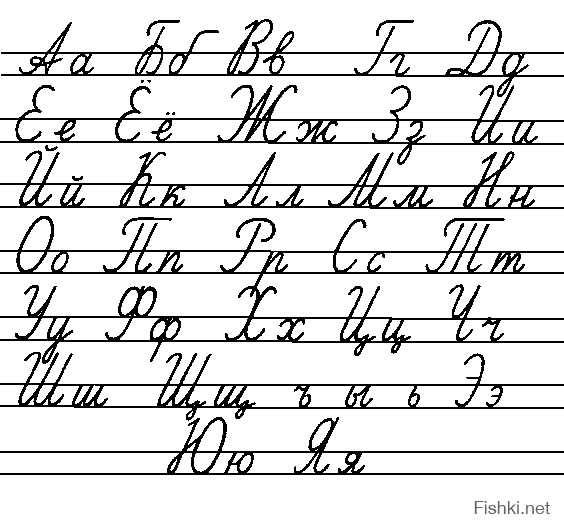 Аа Бб Вв Гг Дд
Ее Ёё Жж Зз Ии
Йй Кк Лл Мм Нн
Оо Пп Рр Сс Тт
Уу Фф Хх Цц Чч
Шш Щщ ъ ы ь Ээ
Юю Яя
Fishki.net